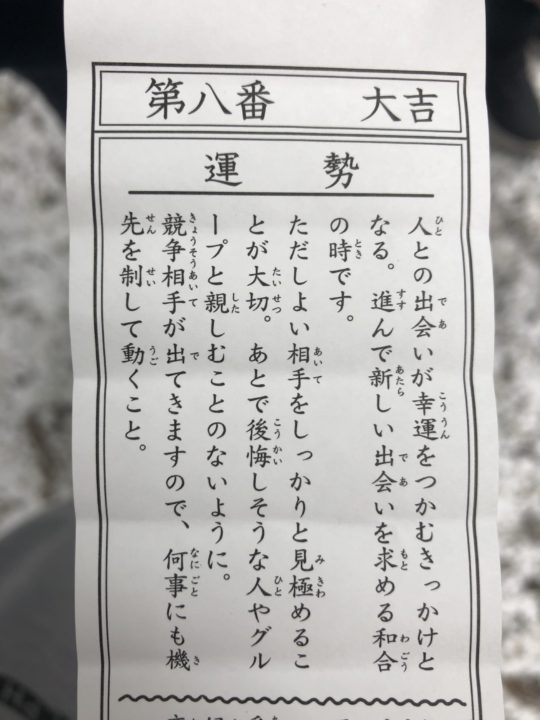 第八番 大吉
運勢
人との出会いが幸運をつかむきっかけと
なる。進んで新しい出会いを求める和合
の時です。
ただしよい相手をしっかりと見極めるこ
とが大切。あとで後悔しそうな人やグル
ープと親しむことのないように。
競争相手が出てきますので、何事にも機
先を制して動くこと。